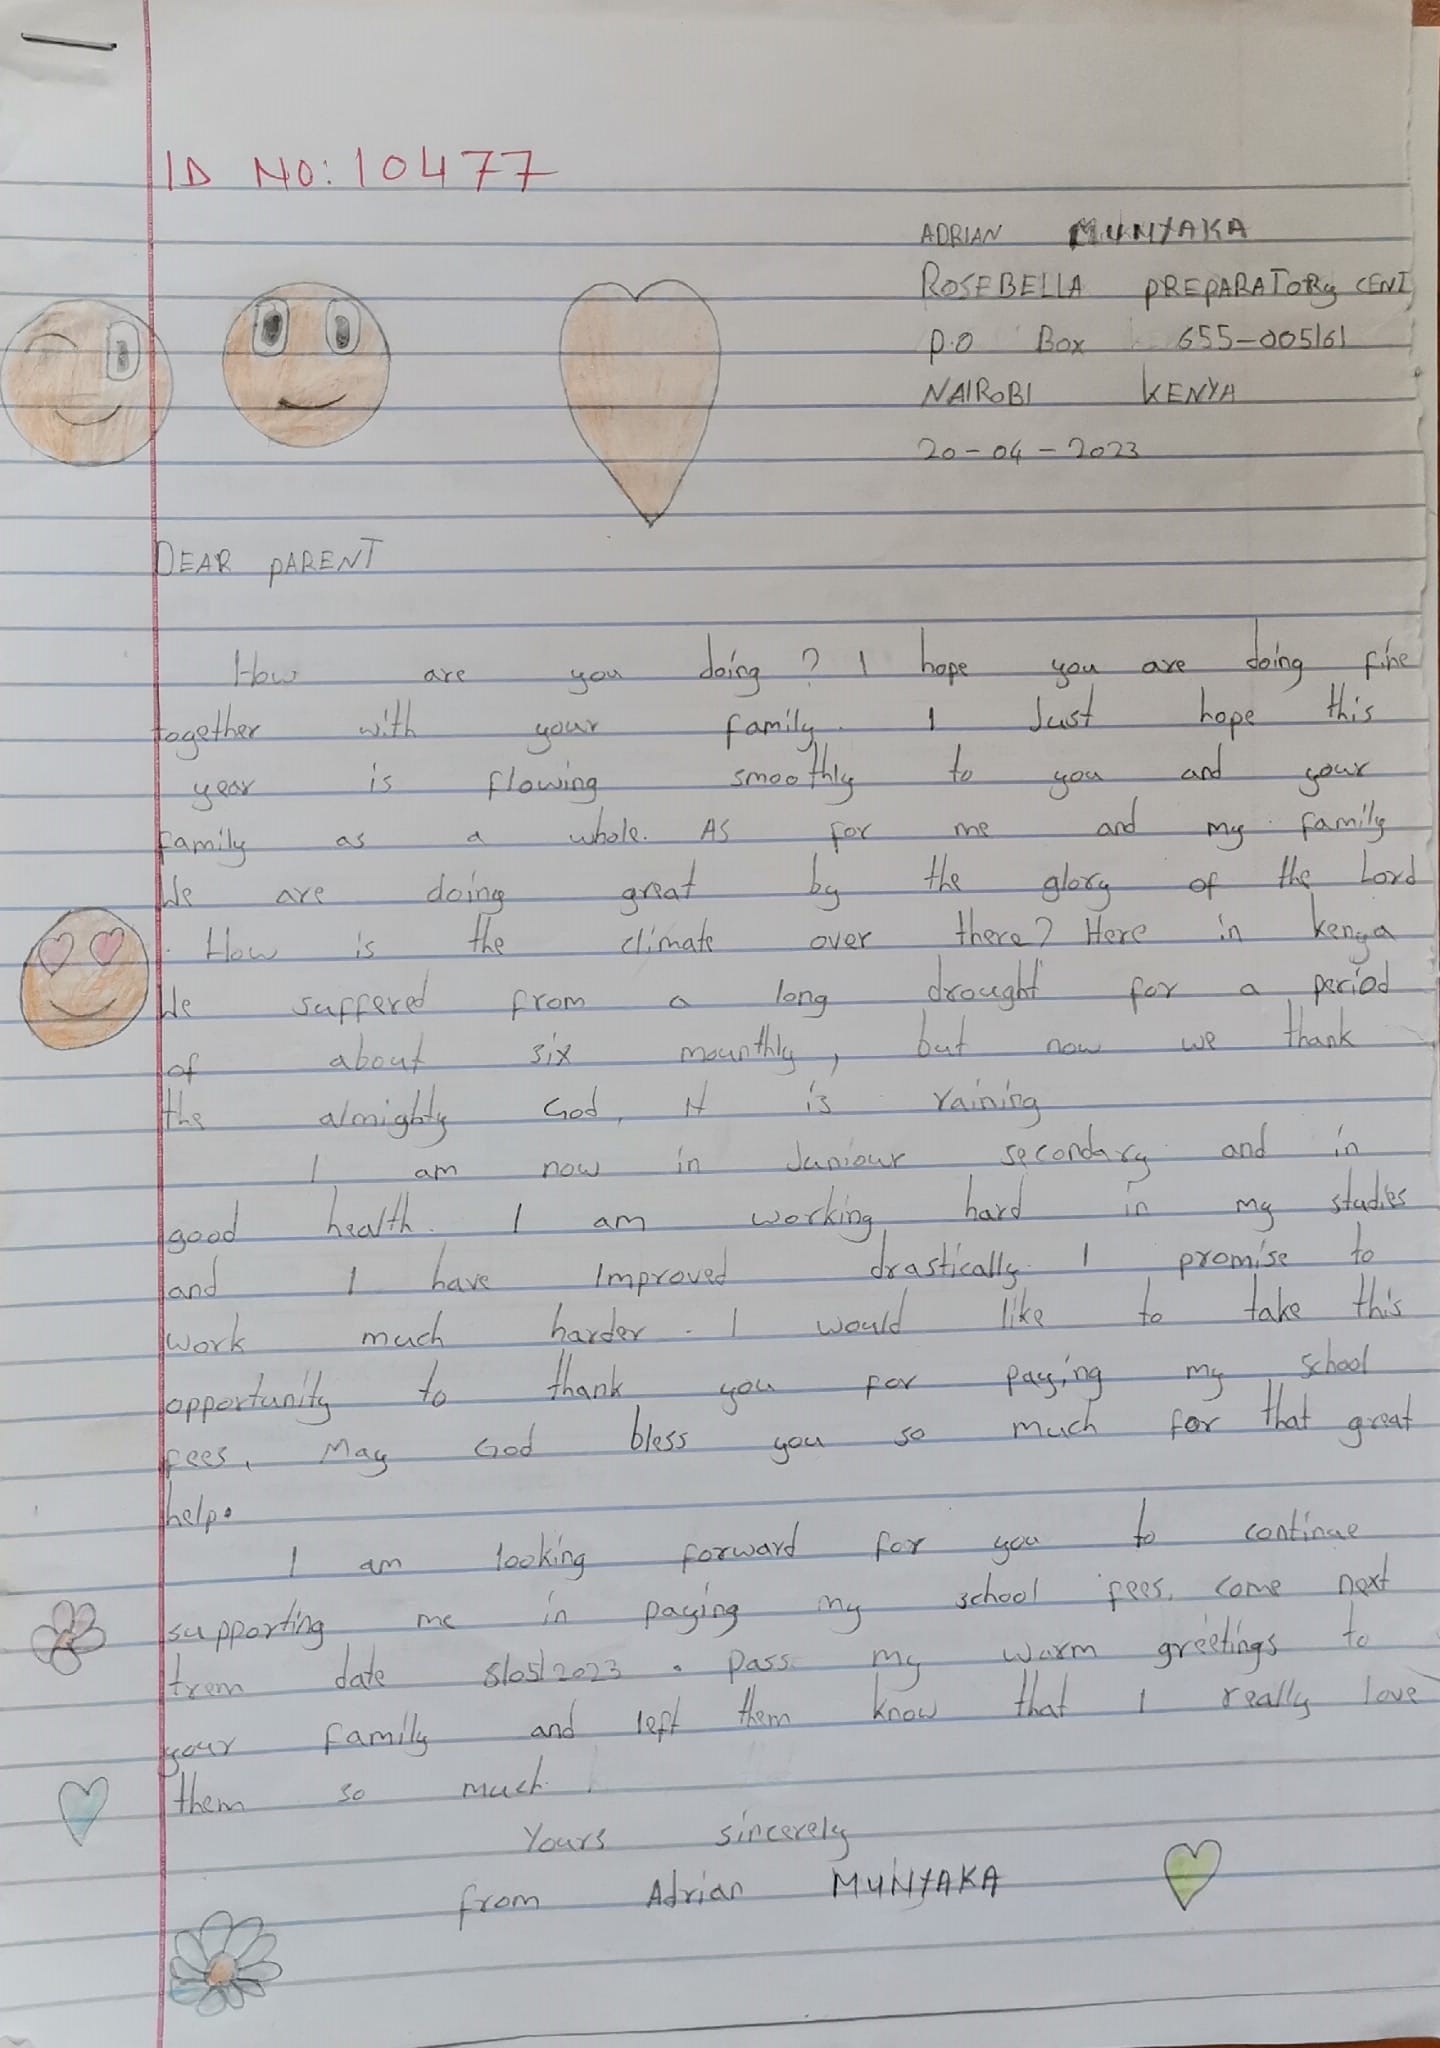 ID NO: 10477
ADRIAN MUNYAKA
ROSEBELLA PREPARATORY CENT
P.O Box 655-00516
NAIROBI KENYA
20-04-2023
DEAR PARENT
How are you doing? I hope you are doing fine
together with your family. I Just hope this
year is flowing smoothly to you and your
family as a whole. As for me and my family
We are doing great by the glory of the Lord
. How is the climate over there? Here in kenya
We suffered from a long drought for a period
of about six mounthly, but now we thank
the almighty God, It is raining
I am now in Juniour secondary and in
good health. I am working hard in my studies
and I have Improved drastically. I promise to
work much harder. I would like to take this
opportunity to thank you for paying my school
fees, May God bless you so much for that great
help.
I am looking forward for you to continue
supporting me in paying my school fees, come next
trem date 8/05/2023. Pass my warm greetings to
your family and left them know that I really love
them so much.
Yours sincerely
from Adrian MUNYAKA